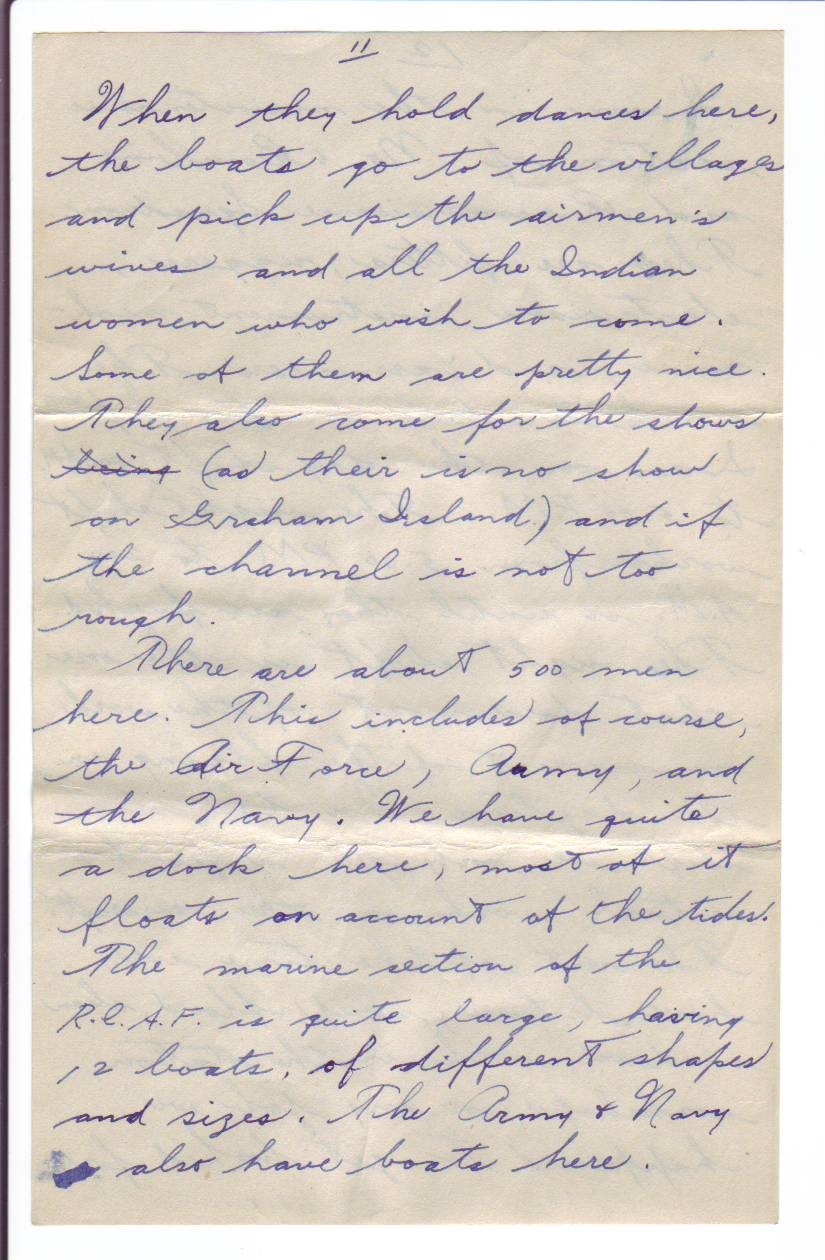 11
When they hold dances here,
the boats go to the villages
and pick up the airmen's
wives and all the Indian
women who wish to come.
Some of them are pretty nice.
They also come for the shows
being (as their is no show
on Grsham Irsland.) and if
the channel is not too
rough.
There are about 500 men
here. This includes of course,
the Air Force, Army, and
the Navy. We have quite
a dock here, most of it
floats on account of the tides.
The marine section of the
R.C.A.F. is quite large, having
12 boats, of different shapes
and sizes. The Army & Navy
also have boats here.